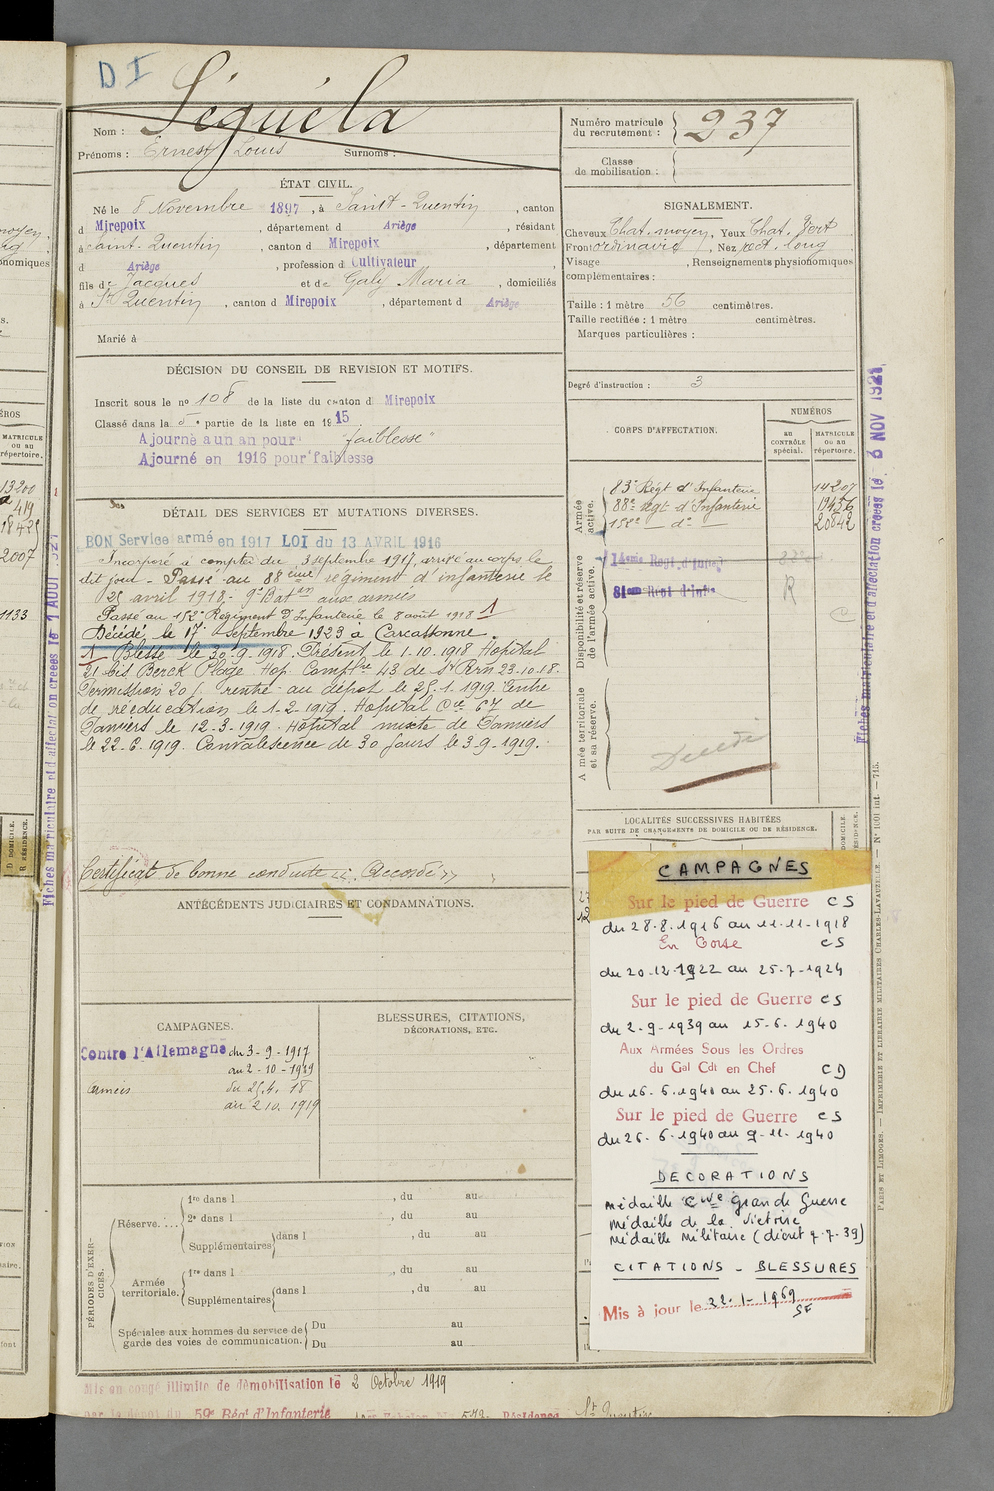 D I
Nom : Séguéla
Prénoms : Ernest Louis Surnoms :
Numéro matricule
du recrutement : 237
Classe
de mobilisation :
ÉTAT CIVIL.
Né le 8 Novembre 1897, à Saint-Quentin, canton
d Mirepoix, département d Ariège, résidant
à Saint-Quentin, canton d Mirepoix, département
d Ariège, profession d Cultivateur,
fils de Jacques et de Galy Maria, domiciliés
à St Quentin, canton d Mirepoix, département d Ariège
Marié à
SIGNALEMENT.
Cheveux Chat. moyen, Yeux Chat. Vert
Front ordinaire, Nez rect. long
Visage , Renseignements physionomiques
complémentaires :
Taille : 1 mètre 56 centimètres.
Taille rectifiée : 1 mètre centimètres.
Marques particulières :
Degré d'instruction : 3
DÉCISION DU CONSEIL DE REVISION ET MOTIFS.
Inscrit sous le no 108 de la liste du canton d Mirepoix
Classé dans la 5e partie de la liste en 1915
Ajourné a un an pour "faiblesse"
Ajourné en 1916 pour faiblesse
DÉTAIL DES SERVICES ET MUTATIONS DIVERSES.
BON Service armé en 1917 LOI du 13 AVRIL 1916
Incorporé à compter du 3 septembre 1917, arrivé au corps le
dit jour - Passé au 88eme régiment d'infanterie le
25 avril 1918 - 9e Batan aux armées
Passé au 152e Régiment d'Infanterie le 8 août 1918 1
Décédé le 17 Septembre 1923 à Carcassonne.
1 Blessé le 30.9.1918. Présent le 1.10.1918 Hopital
21 bis Berck Plage. Hop. Compre 43 de St 23-10-18.
Permission 20 j. rentré au dépot le 25.1.1919. Centre
de rééducation le 1-2-1919. Hopital Cre 67 de
Pamiers le 12-3-1919. Hopital mixte de Pamiers
le 22-6-1919. Convalescence de 30 jours le 3.9.1919.
Certificat de bonne conduite "Accordé"
CORPS D'AFFECTATION.
NUMÉROS
au contrôle spécial.
MATRICULE ou au répertoire.
Armée active.
83e Régt d'Infanterie 14207
88e régt d'Infanterie 19456
152e do 20842
Disponibilité et réserve de l'armée active.
81eme Regt d'Infie R
C
Armée territoriale et sa réserve.
Décédé
Fiches matriculaire et d'affectation creées le 3 NOV 1921
LOCALITÉS SUCCESSIVES HABITÉES
PAR SUITE DE CHANGEMENTS DE DOMICILE OU DE RÉSIDENCE.
ANTÉCÉDENTS JUDICIAIRES ET CONDAMNATIONS.
CAMPAGNES.
Contre l'Allemagne du 3-9-1917
au 2-10-1919
armées du 25.4.18
au 2 10. 1919
BLESSURES, CITATIONS,
DÉCORATIONS, ETC.
PÉRIODES D'EXERCICES.
Réserve.
1re dans l , du au
2e dans l , du au
Supplémentaires dans l , du au
Armée territoriale.
1re dans l , du au
Supplémentaires dans l , du au
Spéciales aux hommes du service de
garde des voies de communication.
Du au
Du au
CAMPAGNES
Sur le pied de Guerre CS
du 28.8.1916 au 11.11-1918
En Corse CS
du 20.12.1922 au 25-7-1924
Sur le pied de Guerre CS
du 2-9-1939 au 15-6-1940
Aux Armées Sous les Ordres
du Gal Cdt en Chef CD
du 16.6.1940 au 25.6.1940
Sur le pied de Guerre CS
du 26.6.1940 au 9-11-1940
DECORATIONS
médaille cive grande Guerre
médaille de la victoire
médaille militaire (décret 7.7.39)
CITATIONS - BLESSURES
Mis à jour le 22.1-1969
SF
PARIS ET LIMOGES. — IMPRIMERIE ET LIBRAIRIE MILITAIRES CHARLES-LAVAUZELLE. — No 1001 int. — 715.
Mis en congé illimité de démobilisation le 2 Octobre 1919
par le dépôt du 59e Régt d'Infanterie Résidence St Quentin
Fiches matriculaire et d'affectation creées le 1 AOUT 1921
MATRICULE
ou au
répertoire.
13200
419
2007
1133